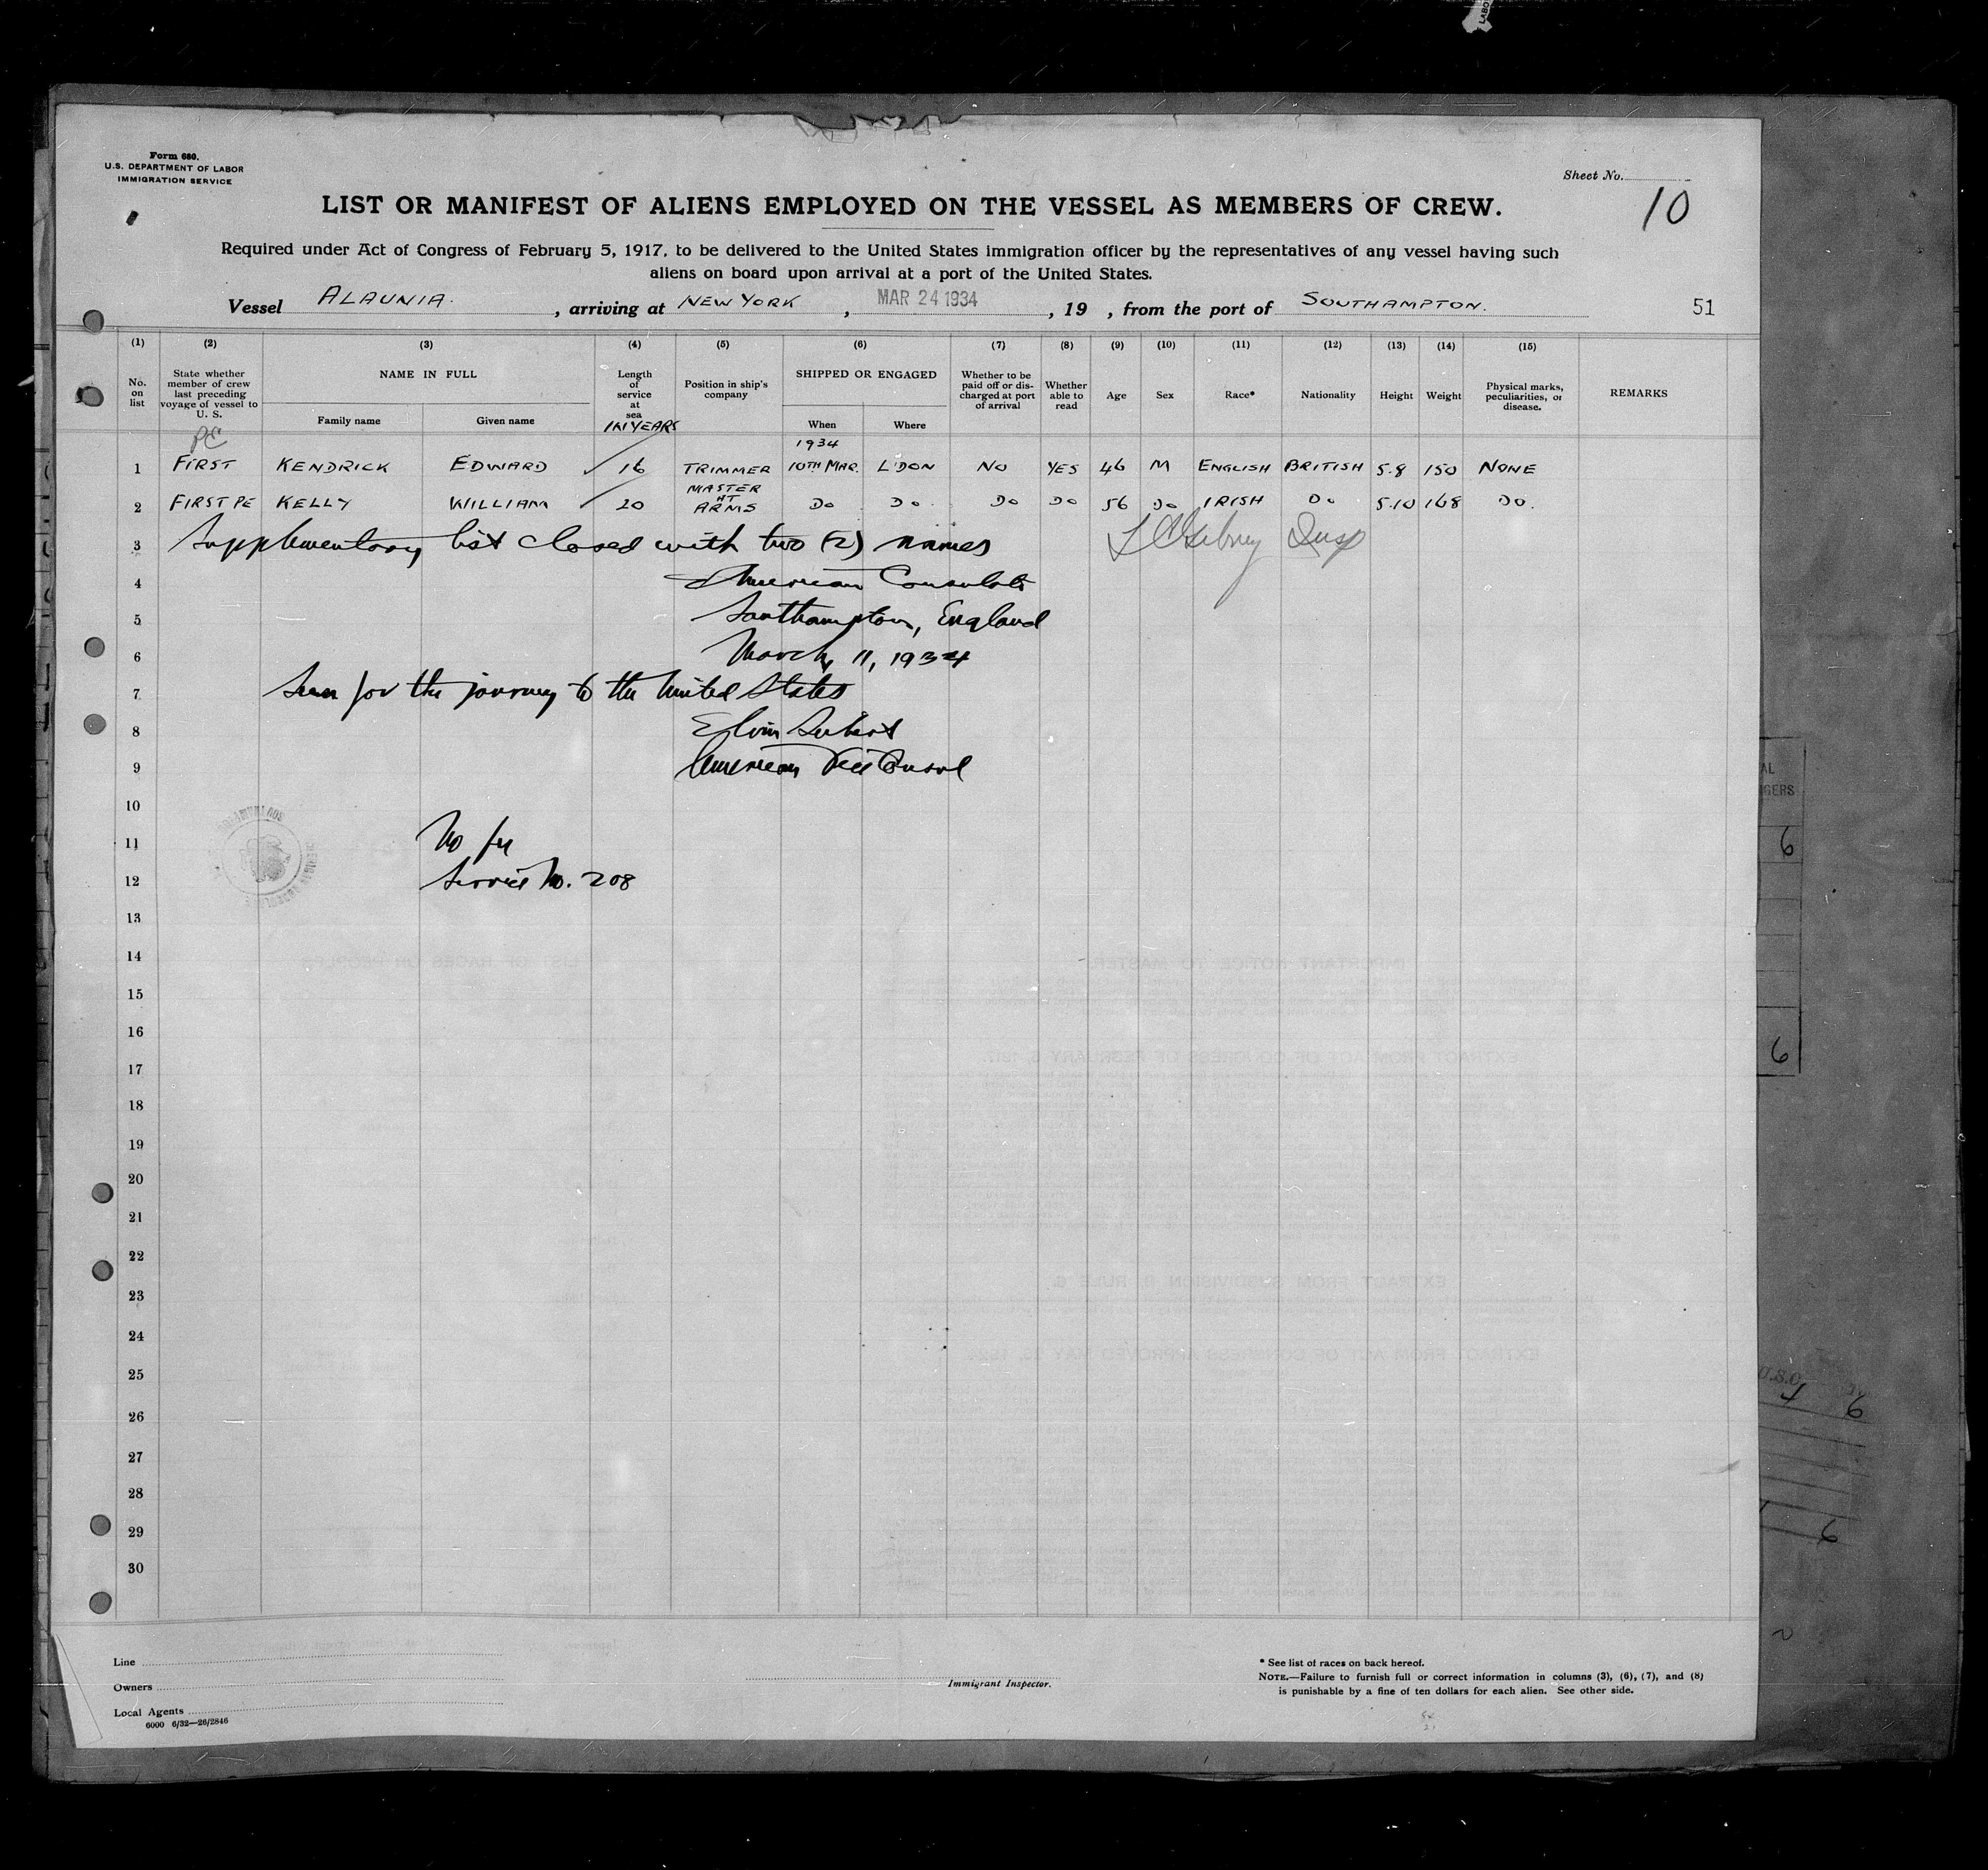 Form 680.
U.S. DEPARTMENT OF LABOR
IMMIGRATION SERVICE
Sheet No.
10
LIST OR MANIFEST OF ALIENS EMPLOYED ON THE VESSEL AS MEMBERS OF CREW.
Required under Act of Congress of February 5, 1917, to be delivered to the United States immigration officer by the representatives of any vessel having such
aliens on board upon arrival at a port of the United States.
Vessel ALAUNIA. , arriving at NEW YORK , MAR 24 1934 , 19 , from the port of SOUTHAMPTON. 51
(1) (2) (3) (4) (5) (6) (7) (8) (9) (10) (11) (12) (13) (14) (15)
No. on list
State whether member of crew last preceding voyage of vessel to U. S.
NAME IN FULL
Family name
Given name
Length of service at sea
IN YEARS
Position in ship's company
SHIPPED OR ENGAGED
When
Where
Whether to be paid off or discharged at port of arrival
Whether able to read
Age
Sex
Race*
Nationality
Height
Weight
Physical marks, peculiarities, or disease.
REMARKS
1934
1 FIRST KENDRICK EDWARD 16 TRIMMER 10TH MAR. L'DON NO YES 46 M ENGLISH BRITISH 5.8 150 NONE
2 FIRST PE KELLY WILLIAM 20 MASTER AT ARMS DO DO. DO DO 56 DO IRISH DO 5.10 168 DO.
3 Supplementary list closed with two (2) names
4 American Consulate
5 Southampton, England
6 March 11, 1934
7 Seen for the journey to the United States
8 Elvin Seibert
9 American Vice Consul
10
11 No fee
12 Service No. 208
13
14
15
16
17
18
19
20
21
22
23
24
25
26
27
28
29
30
Line
Owners
Local Agents
6000 6/32—26/2846
Immigrant Inspector.
* See list of races on back hereof.
NOTE.—Failure to furnish full or correct information in columns (3), (6), (7), and (8)
is punishable by a fine of ten dollars for each alien. See other side.